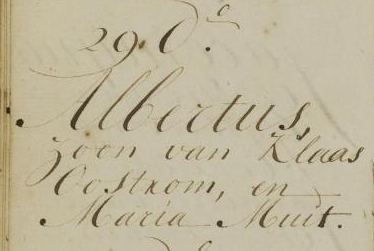 29 d.e
Albertus,
zoon van Klaas
Oostrom, en
Maria Muit.